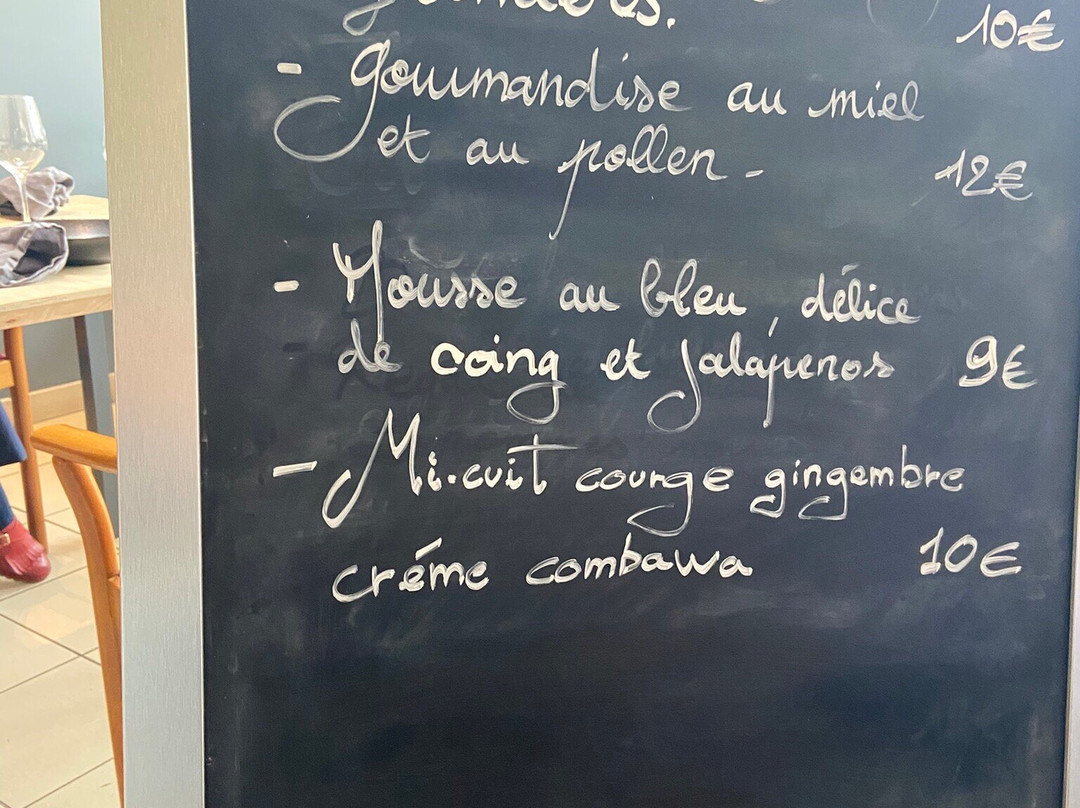 10€
- Gourmandise au miel
et au pollen - 12€
- Mousse au bleu, délice
de coing et Jalapenos 9€
- Mi-cuit courge gingembre
créme combawa 10€